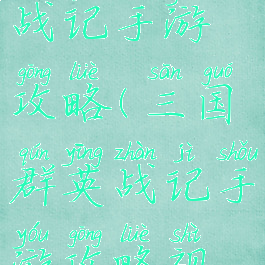 战记手游
gōng lüè sān guó
攻略(三国
qún yīng zhàn jì shǒu
群英战记手
yóu gōng lüè shì
游攻略视